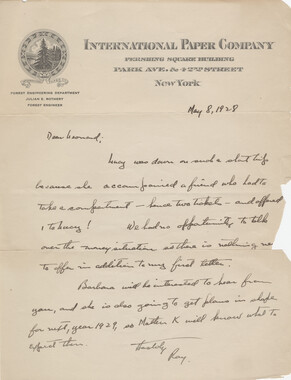 INTERNATIONAL PAPER COMPANY
PERSHING SQUARE BUILDING
PARK AVE. & 42ND STREET
NEW YORK
FOREST ENGINEERING DEPARTMENT
JULIAN E. ROTHERY
FOREST ENGINEER
May 8, 1928
Dear Leonard,
Lucy was down on such a short trip
because she accompanied a friend who had to
take a compartment – hence two tickets – and offered
1 to Lucy! We had no opportunity to talk
over the survey situation so there is nothing new
to offer in addition to my first letter.
Barbara will be interested to hear from
you, and she is also going to get plans in shape
for next year 1929, so Mother K will know what to
expect then.
Hastily
Ray.